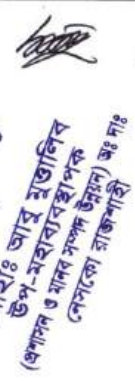 মোঃ আবু মুত্তালিব
উপ-মহাব্যবস্থাপক
(প্রশাসন ও মানব সম্পদ উন্নয়ন) অঃ দাঃ
নেসকো রাজশাহী